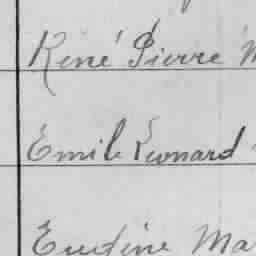 René Pierre M
Emile Léonard
Eudine Ma